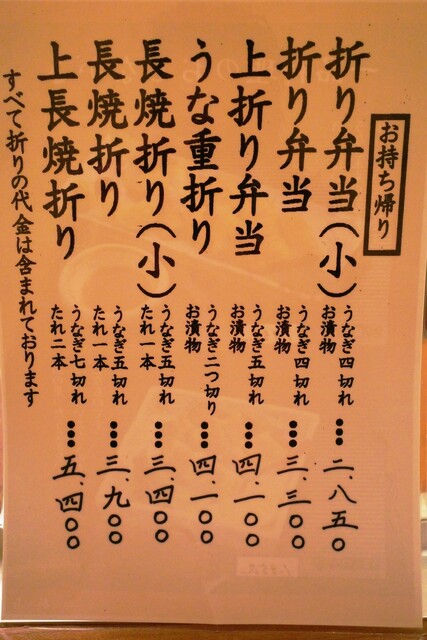 お持ち帰り
折り弁当(小) うなぎ四切れ お漬物 … 二、八五〇
折り弁当 うなぎ四切れ お漬物 … 三、三〇〇
上折り弁当 うなぎ五切れ お漬物 … 四、一〇〇
うな重折り うなぎ二つ切り お漬物 … 四、一〇〇
長焼折り(小) うなぎ五切れ たれ一本 … 三、四〇〇
長焼折り うなぎ五切れ たれ一本 … 三、九〇〇
上長焼折り うなぎ七切れ たれ二本 … 五、四〇〇
すべて折りの代金は含まれております